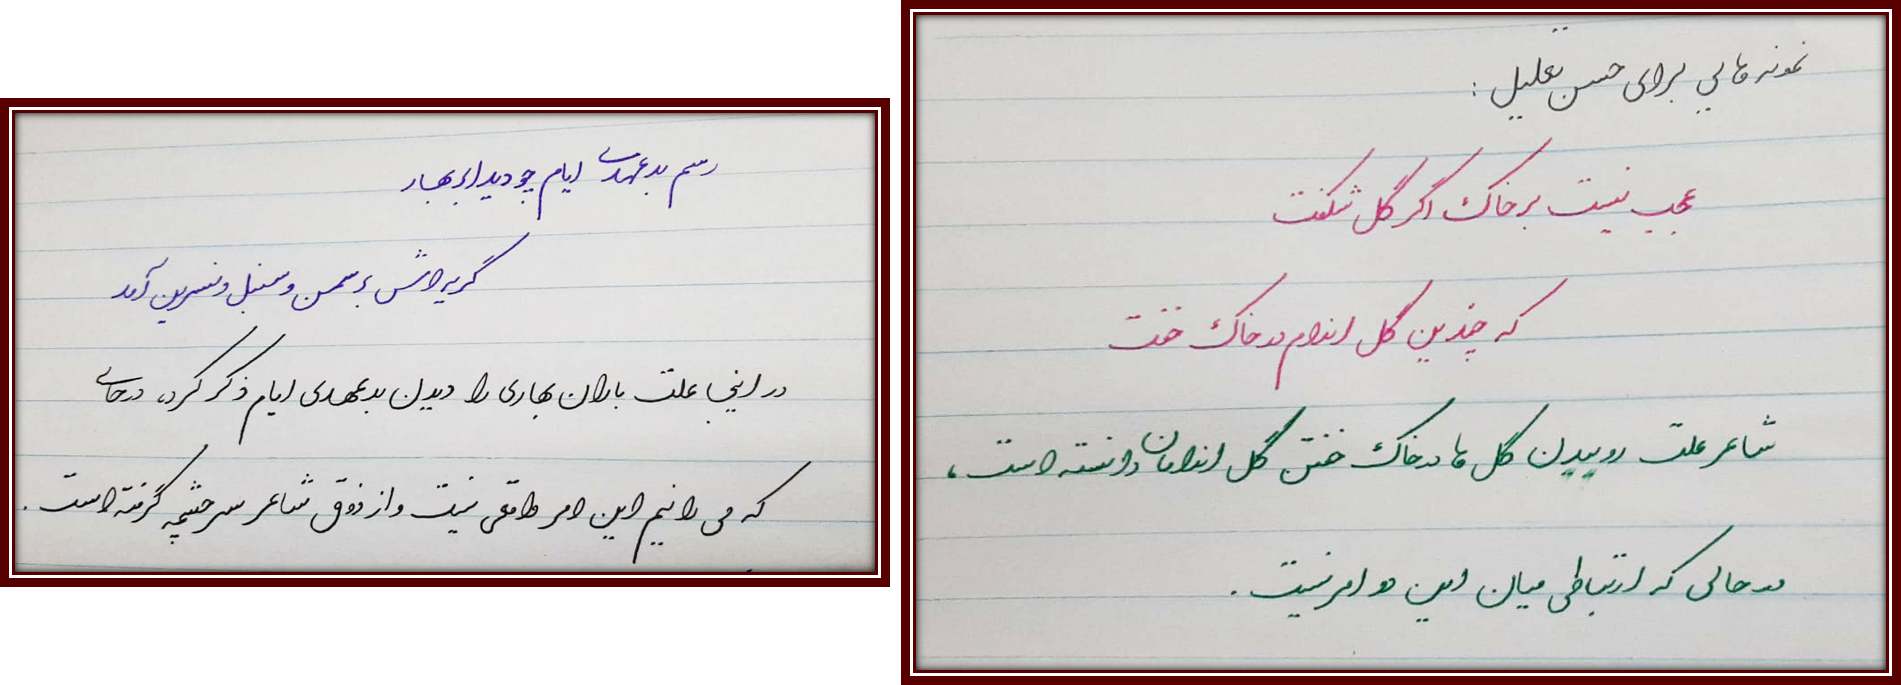 نمونه هایی برای حسن تعلیل :
عجب نیست بر خاک اگر گل شکفت
که چندین گل اندام در خاک خفت
شاعر علت روییدن گل ها در خاک خفتن گل اندامان دانسته است،
در حالی که ارتباطی میان این دو امر نیست.
رسم بدعهدی ایام چو دید ابر بهار
گریه اش بر سمن و سنبل و نسرین آمد
در اینجا علت باران بهاری را دیدن بدعهدی ایام ذکر کرد، در حالی
که می دانیم این امر واقعی نیست و از ذوق شاعر سرچشمه گرفته است.